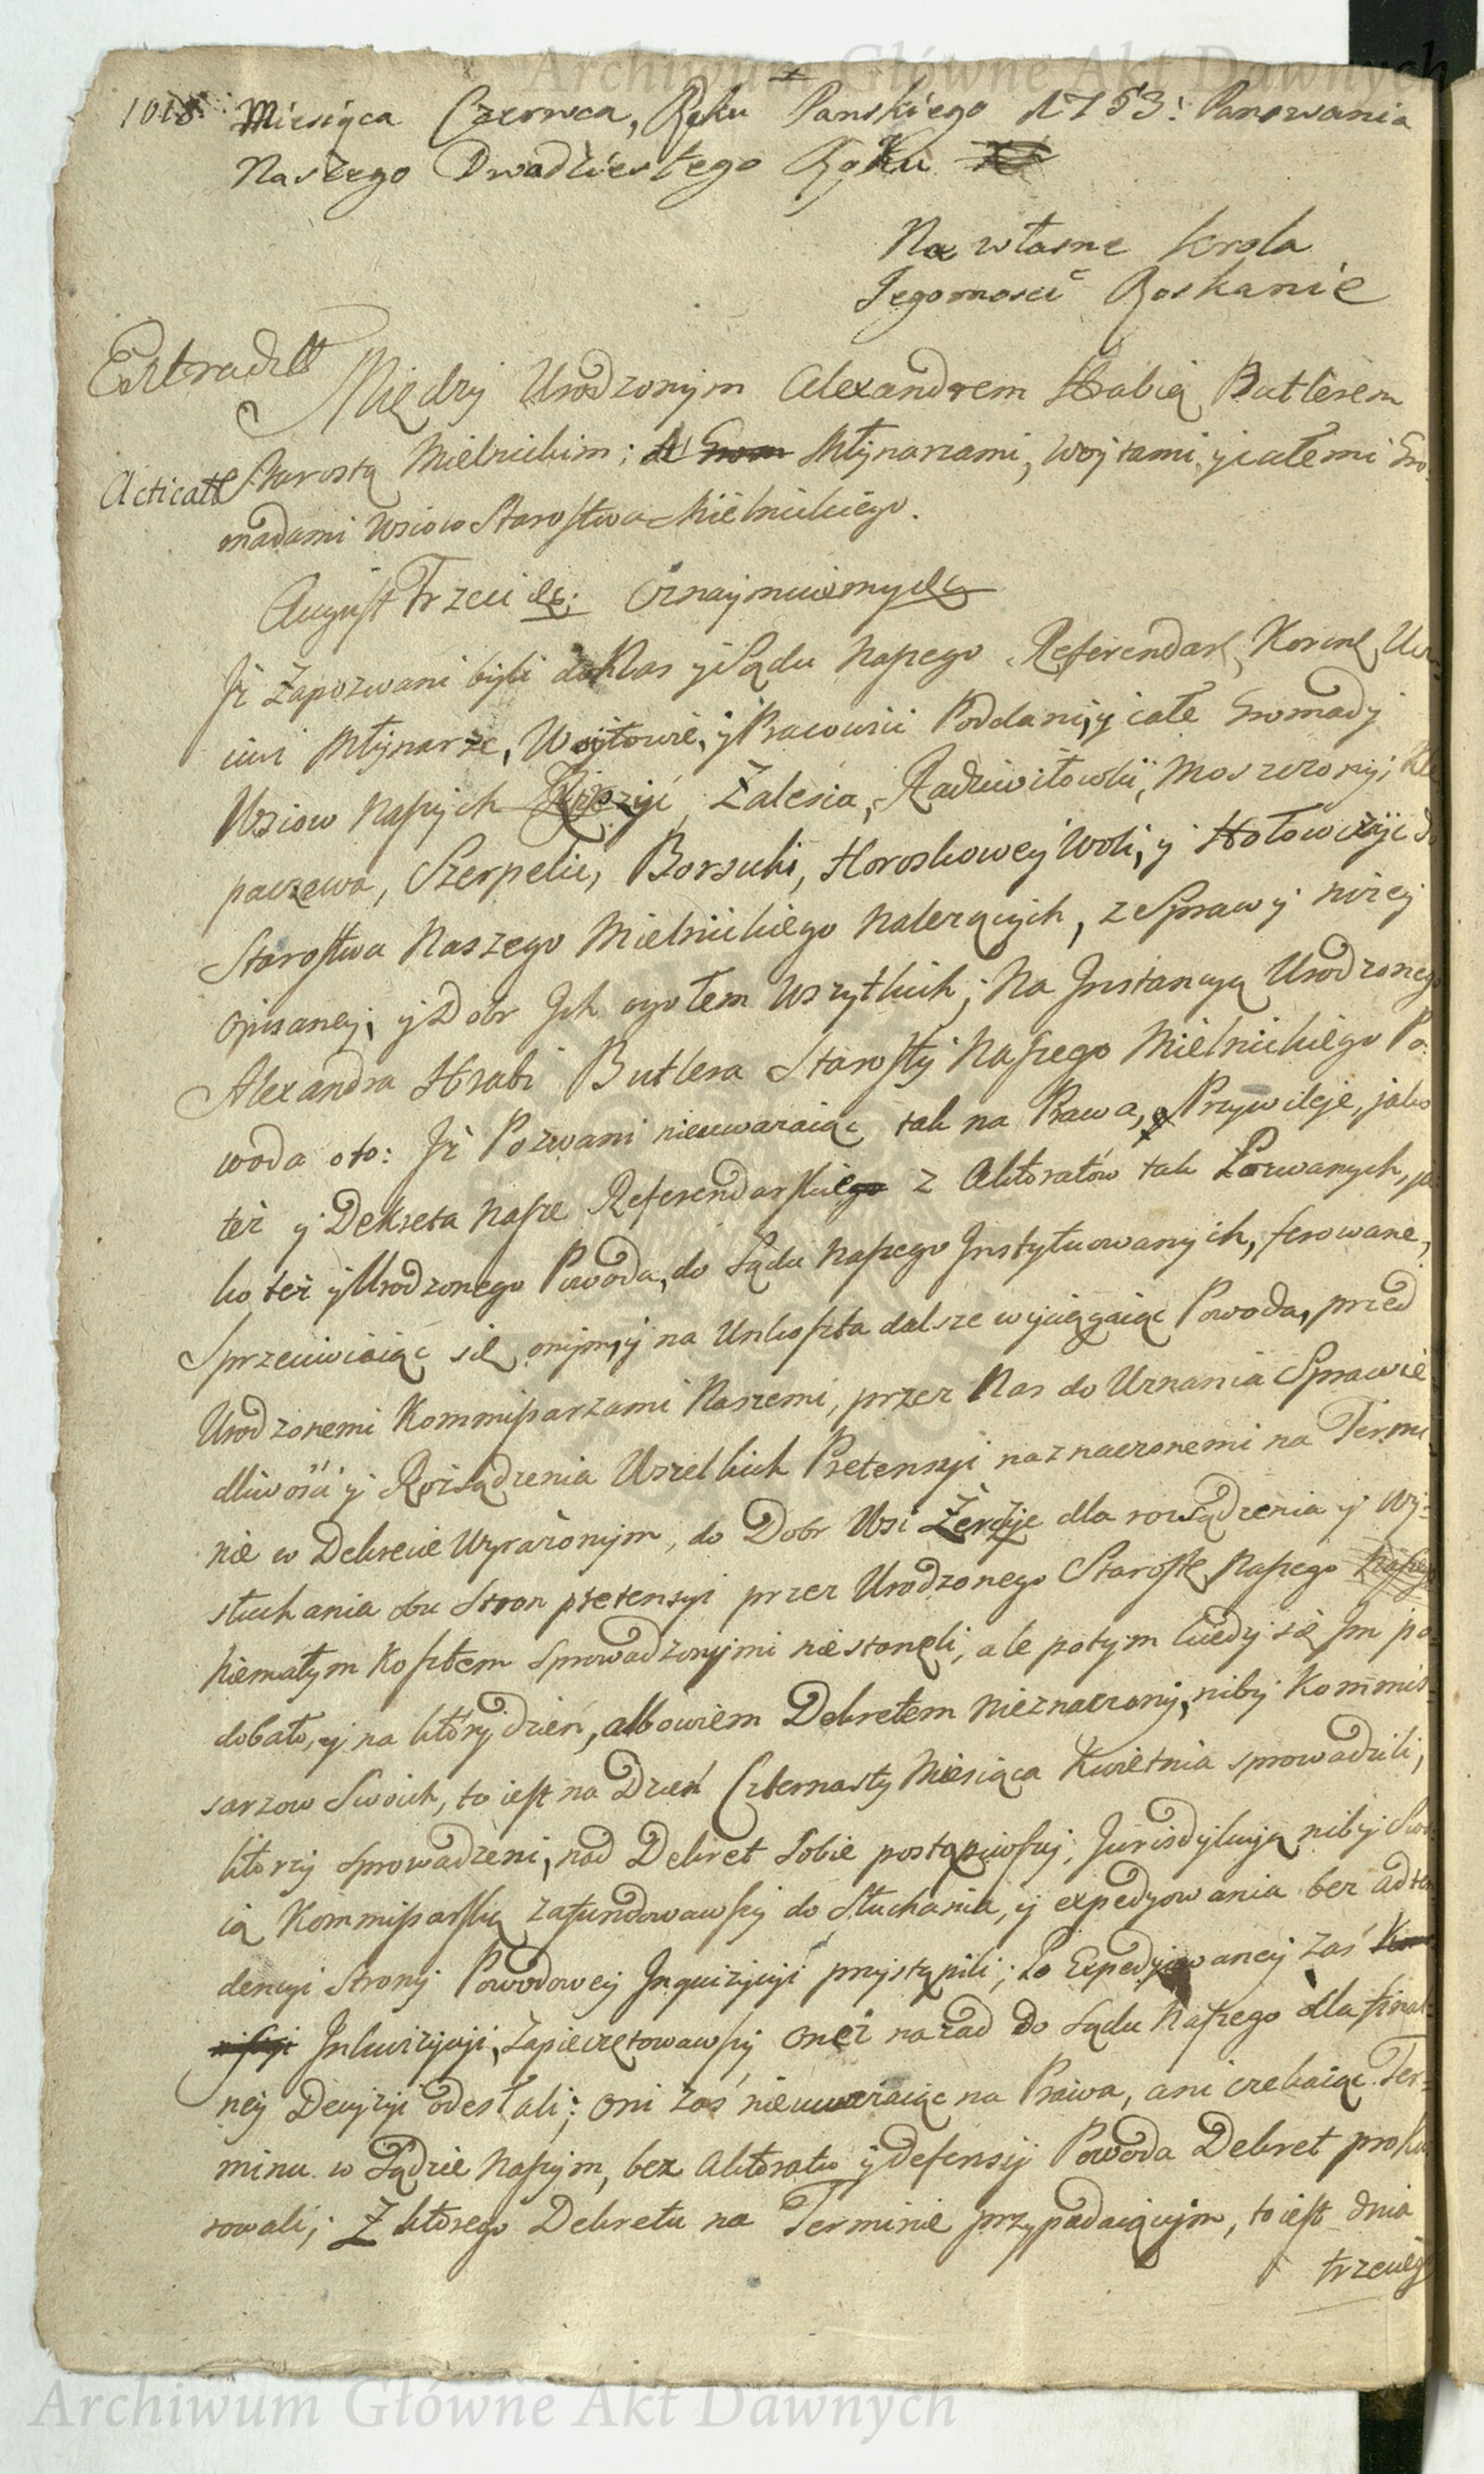 Archiwum Główne Akt Dawnych
1018
Miesiąca Czerwca, Roku Panskiego 1753: Panowania
Naszego Dwadziestego Roku
Na własne Krola
Jegomosci Roskanie
Extradtt
Między Urodzonym Alexandrem Hrabią Butlerem
Acticatt
Starostą Mielnickim; A Młynarzami, Woytami, y całemi Gro-
madami Wsiow Starostwa Mielnickiego.
August Trzeci &c: Oznaymuiemy &c
Iż Zapozwani byli do Nas y Sądu Naszego Referendar, Koron, Ucz-
ciwi Młynarze, Woytowie, y Pracowici Poddani, y całe Gromady
Wsiow Naszych Zalesia, Radziwiłowki, Moszczony, Kle
paczewa, Szerpelic, Borsuki, Horoskowey Woli, y Hołowczyc do
Starostwa Naszego Mielnickiego należących, z Sprawy niżey
opisaney, y Dobr Ich ogołem wszytkich; Na Instancyą Urodzonego
Alexandra Hrabi Butlera Starosty Naszego Mielnickiego Po-
woda oto: Iż Pozwani nieuwazaiąc tak na Prawa, Przywileje, jako
też y Dekreta Nasze Referendarskie z Aktoratów tak Pozwanych, ja
ko też y Urodzonego Powoda, do Sądu Naszego Instytuowanych, ferowane,
Sprzeciwiaiąc się onym, y na Unkoszta dalsze wyciągaiąc Powoda, przed
Urodzonemi Kommissarzami Naszemi, przez Nas do Uznania Sprawie
dliwości y Rozsądzenia Wszelkich Pretensyi naznaczonemi na Termi
nie w Dekrecie Wyrażonym, do Dobr Wsi Zerczyc dla rozsądzenia y wy-
słuchania obu Stron pretensyi przez Urodzonego Starostę Naszego
niemałym Kosztem sprowadzonymi niestoneli, ale potym kiedy się Im po
dobało, y na który dzień, albowiem Dekretem nieznaczony, niby Kommis-
sarzow Swoich, to iest na Dzień Czternasty Miesiąca Kwietnia sprowadzili,
ktorzy sprowadzeni, nad Dekret Sobie postąpiwszy, Jurisdykcyą niby Swo
ią Kommissarską zafundowawszy do Słuchania, y expedyowania bez adten
dencyi Strony Powodowey Inquizycyi przystąpili; Po Expedyowaney zaś
Inkwizycyi, Zapieczętowawszy onęż nazad do Sądu Naszego dla final-
ney Decyzyi odesłali; oni zaś nieuważaiąc na Prawa, ani czekaiąc Ter-
minu w Sądzie Naszym, bez Aktoratu y defensy Powoda Dekret proku
rowali; Z ktorego Dekretu na Terminie przypadaiącym, to iest dnia
trzeciego
Archiwum Główne Akt Dawnych